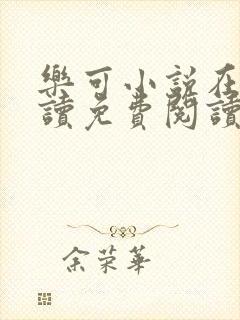 樂可小說在
讀免費閱讀
余荣華